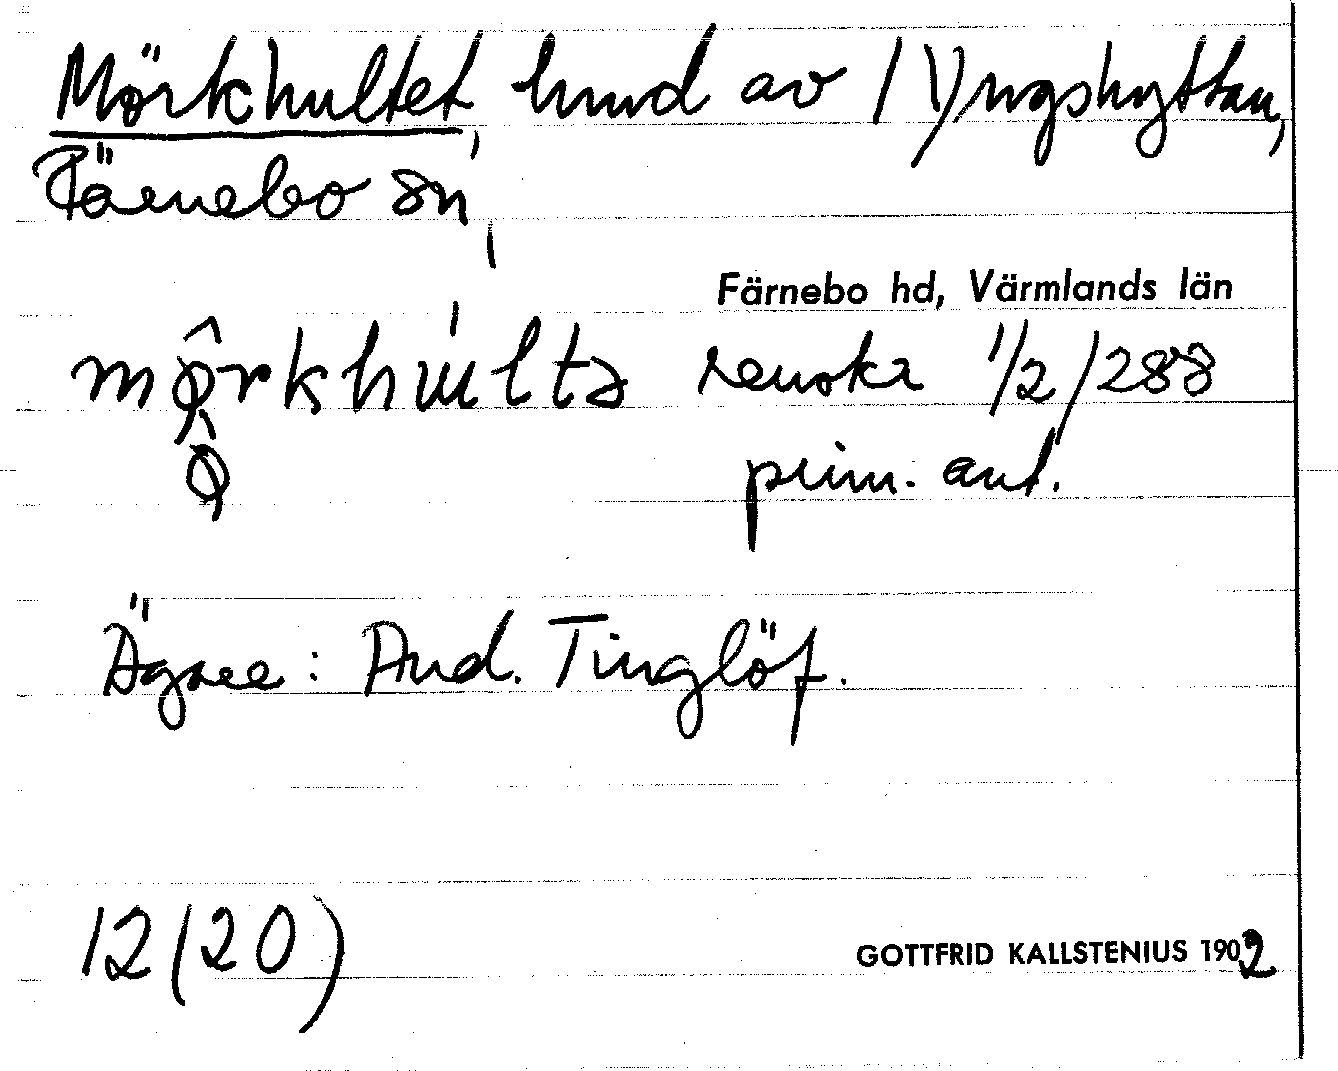 Mörkhultet, hmd av 1 Yngshyttan,
Färnebo sn,
Färnebo hd, Värmlands län
renska 1/2/288
prim. ant.
Ägare: And. Tinglöf.
12(20)
GOTTFRID KALLSTENIUS 1902